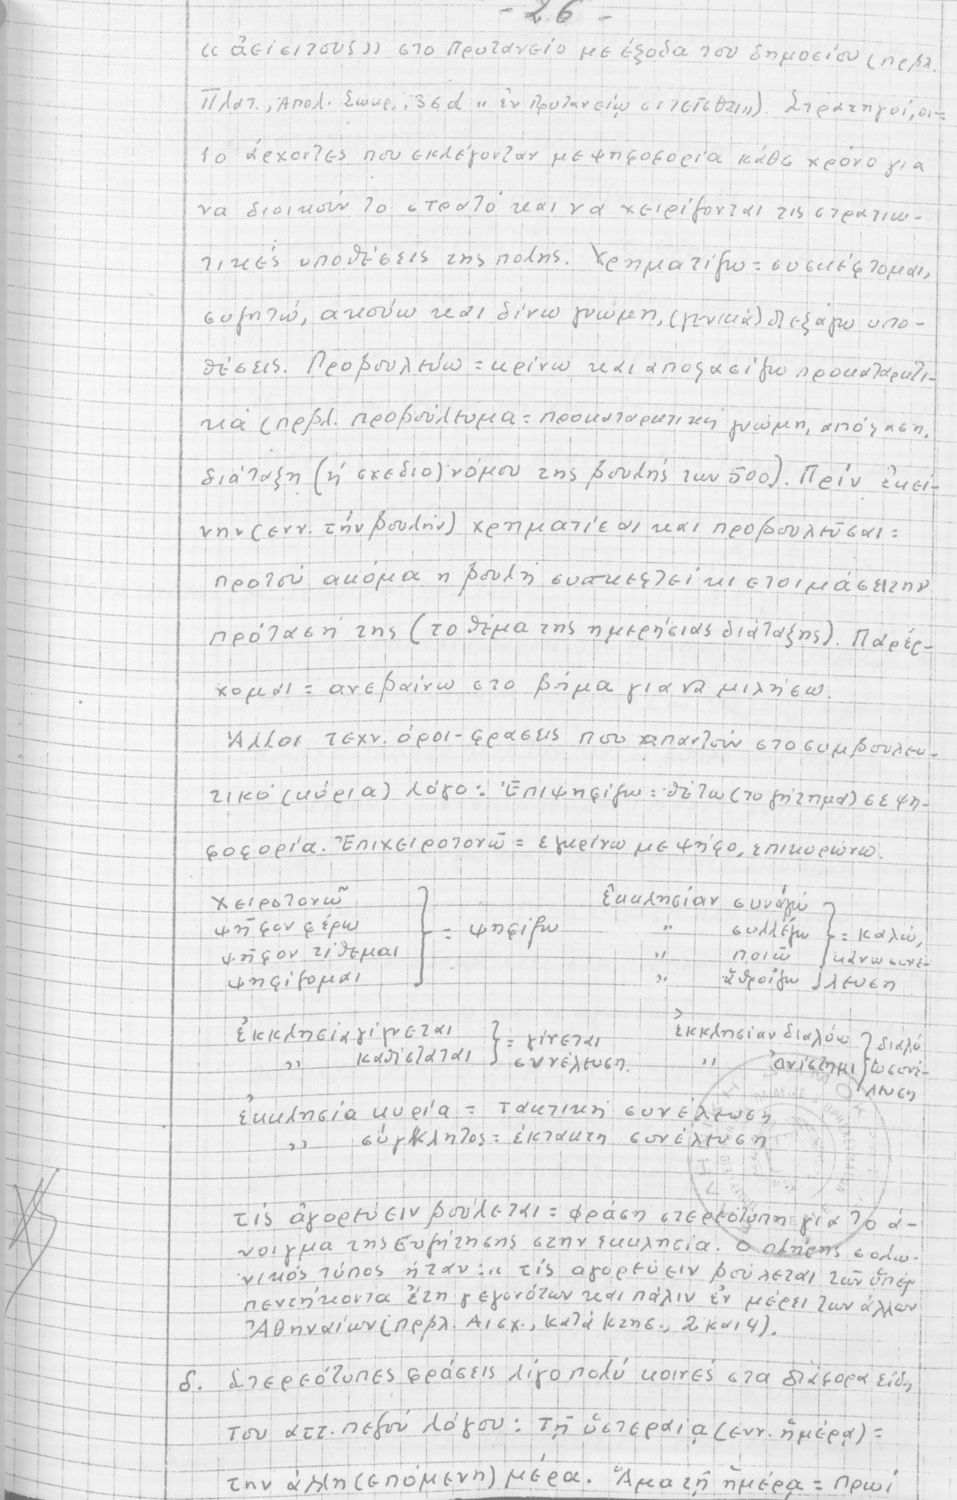 - 26 -
«ἀεισίτους» στο πρυτανείο με έξοδα του δημοσίου (πρβλ.
Πλατ., Ἀπολ. Σωκρ., 36d „ἐν Πρυτανείῳ σιτεῖσθαι„). Στρατηγοί, οι=
10 άρχοντες που εκλέγονταν με ψηφοφορία κάθε χρόνο για
να διοικούν το στρατό και να χειρίζονται τις στρατιω-
τικές υποθέσεις της πόλης. Χρηματίζω = συσκέφτομαι,
συζητώ, ακούω και δίνω γνώμη, (γενικά) διεξάγω υπο-
θέσεις. Προβουλεύω = κρίνω και αποφασίζω προκαταρκτι-
κά (πρβλ. προβούλευμα = προκαταρκτική γνώμη, απόφαση,
διάταξη (ή σχέδιο) νόμου της βουλής των 500). Πρίν ἐκεί-
νην (ενν. τήν βουλήν) χρηματίσαι και προβουλεῦσαι =
προτού ακόμα η βουλή συσκεφτεί κι ετοιμάσει την
πρότασή της (το θέμα της ημερήσιας διάταξης). Παρέρ-
χομαι = ανεβαίνω στο βήμα για να μιλήσω.
Άλλοι τεχν. όροι-φράσεις που απαντούν στο συμβουλευ-
τικό (κύρια) λόγο: Ἐπιψηφίζω = θέτω (το ζήτημα) σε ψη-
φοφορία. Ἐπιχειροτονῶ = εγκρίνω με ψήφο, επικυρώνω.
χειροτονῶ
ψῆφον φέρω
ψῆφον τίθεμαι
ψηφίζομαι
= ψηφίζω
ἐκκλησίαν συνάγω
„ συλλέγω
„ ποιῶ
„ ἀθροίζω
= καλώ,
κάνω συνέ-
λευση
ἐκκλησία γίγνεται
„ καθίσταται
= γίνεται
συνέλευση.
ἐκκλησίαν διαλύω
„ ἀνίστημι
διαλύ
ω συνέ-
λευση
ἐκκλησία κυρία = τακτική συνέλευση
„ σύγκλητος = έκτακτη συνέλευση
τίς ἀγορεύειν βούλεται = φράση στερεότυπη για το ά-
νοιγμα της συζήτησης στην εκκλησία. Ο πλήρης σολω-
νικός τύπος ήταν: „τίς αγορεύειν βούλεται τῶν ὑπέρ
πεντήκοντα ἔτη γεγονότων και πάλιν ἐν μέρει των άλλων
Ἀθηναίων (πρβλ. Αισχ., κατά Κτησ., 2 και 4).
δ. Στερεότυπες φράσεις λίγο πολύ κοινές στα διάφορα είδη
του αττ. πεζού λόγου: τῇ ὑστεραίᾳ (ενν. ἡμέρᾳ) =
την άλλη (επόμενη) μέρα. Ἅμα τῇ ἡμέρᾳ = πρωί